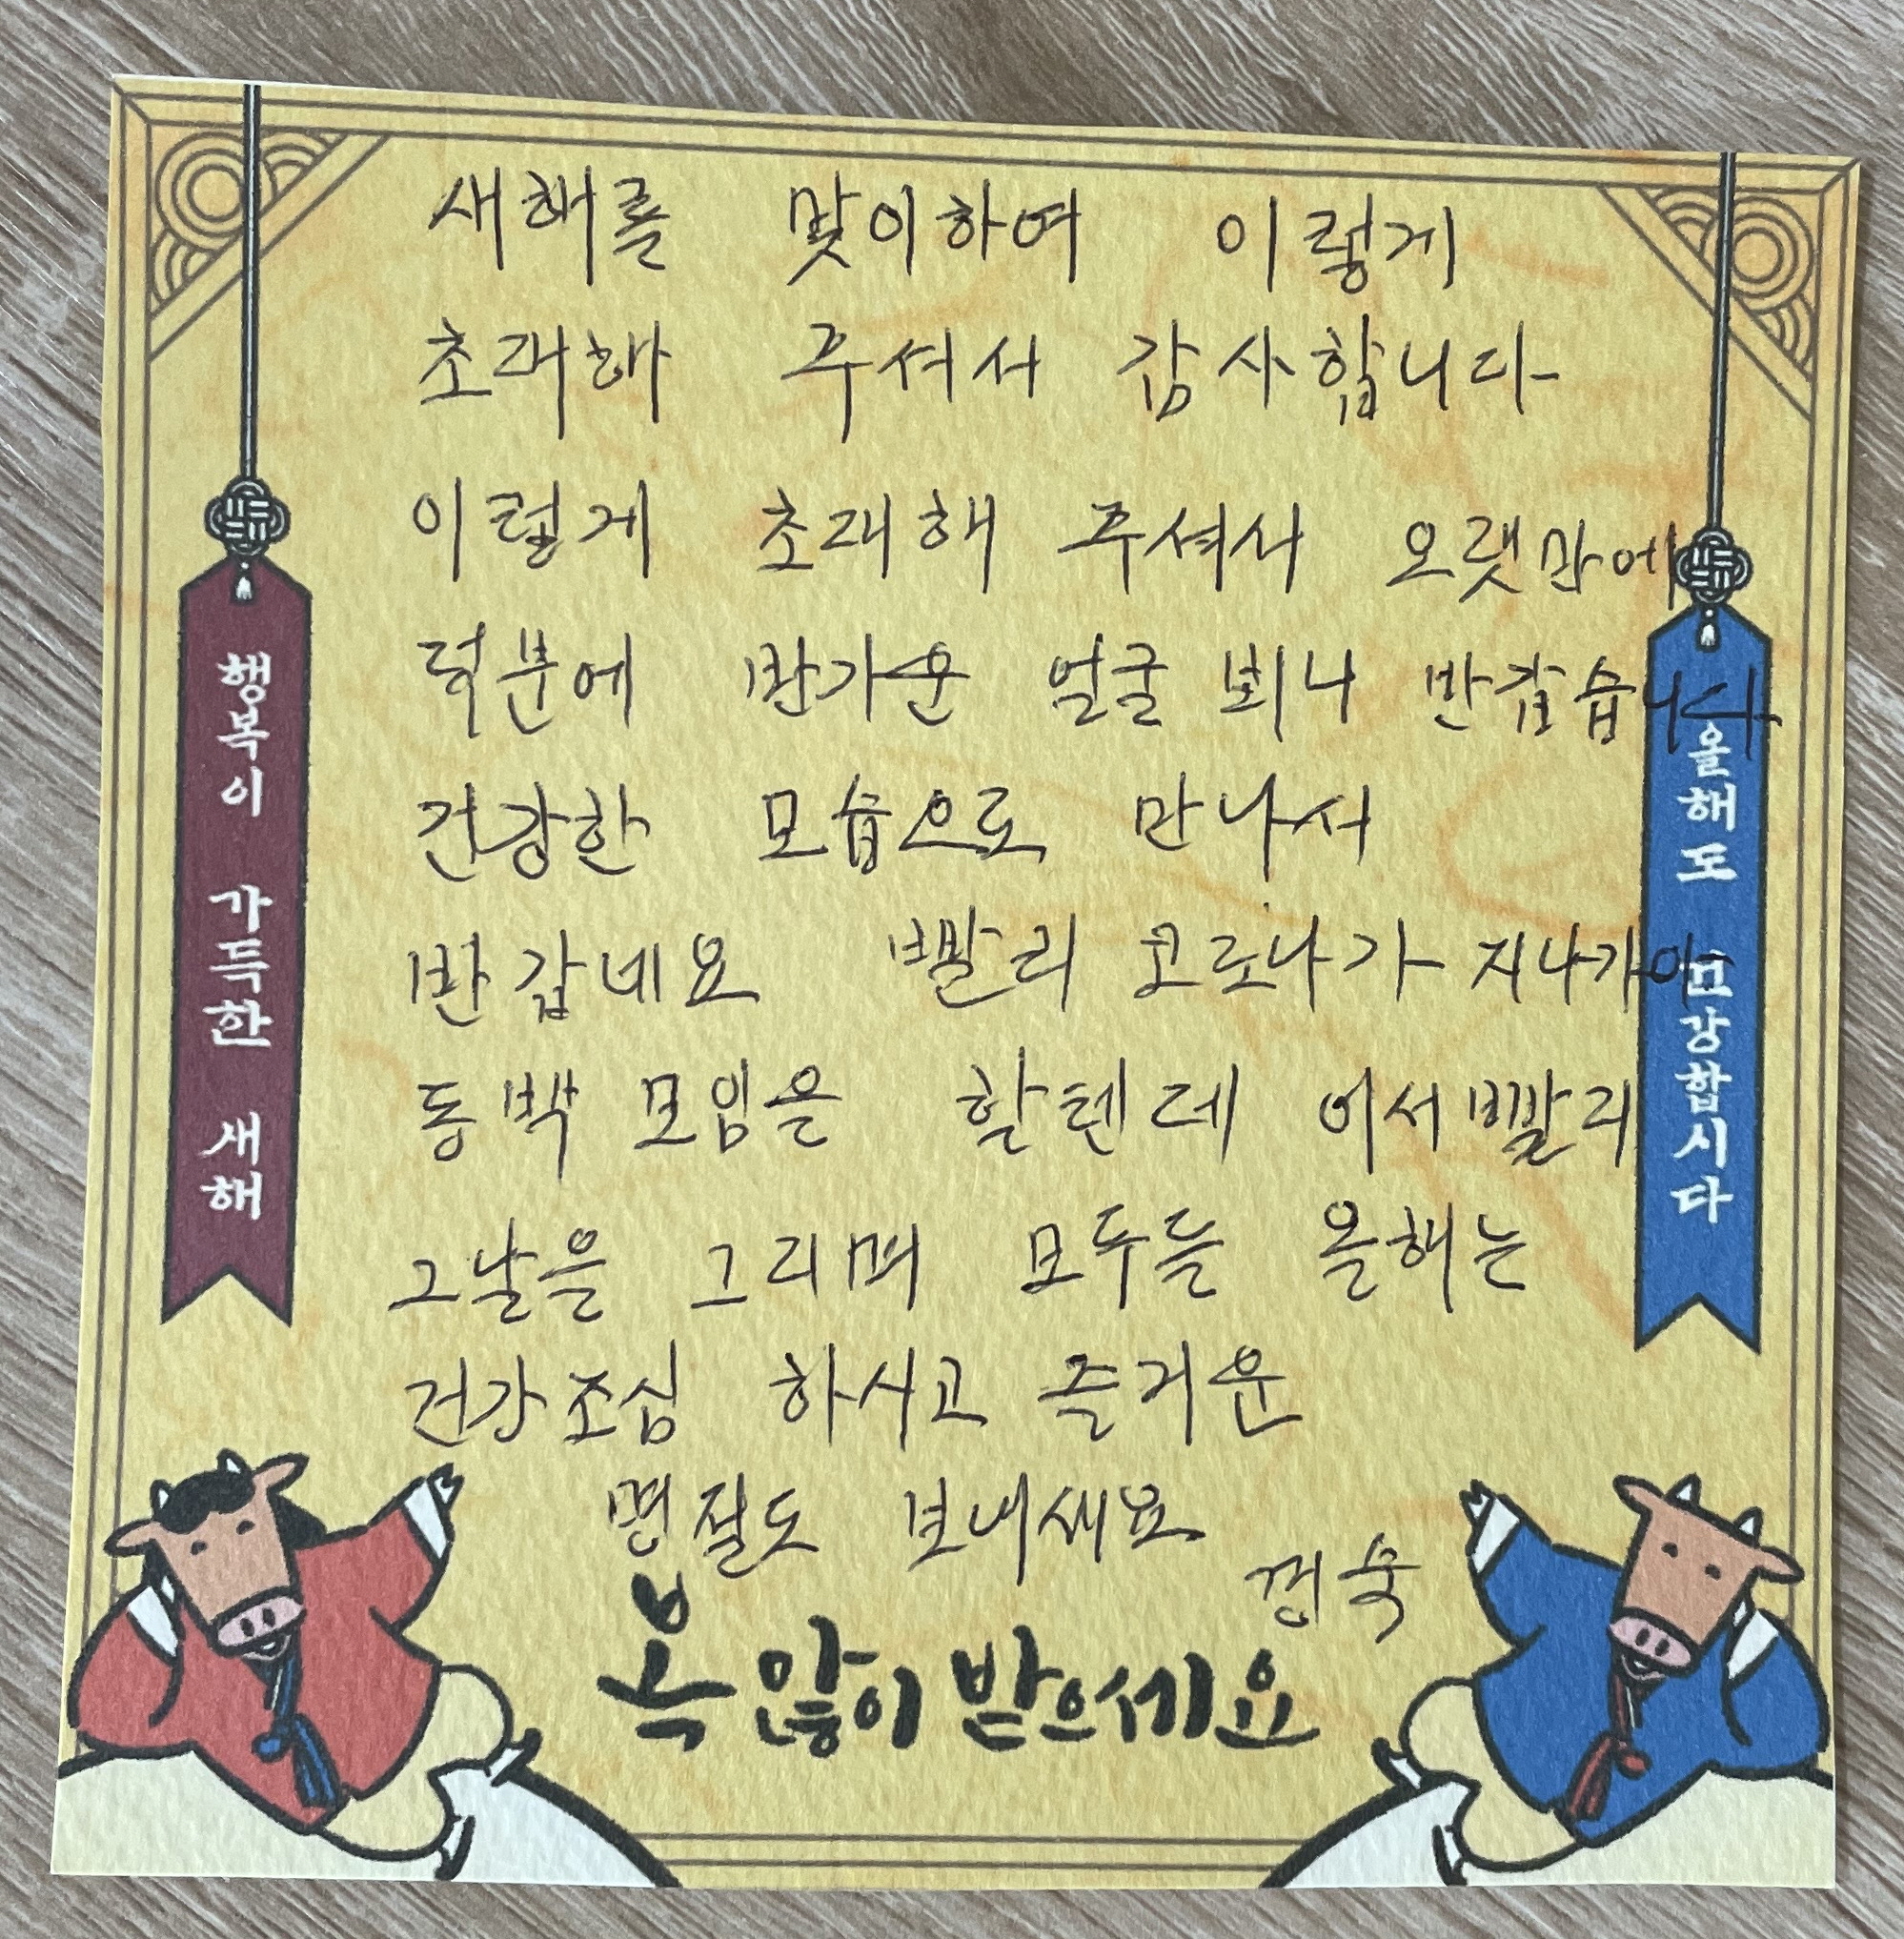 새해를 맞이하여 이렇게
초래해 주셔서 감사합니다
이렇게 초래해 주셔서 오랫만에
덕분에 반가운 얼굴 뵈니 반갑습니다
건강한 모습으로 만나서
반갑네요 빨리 코로나가 지나가야
동백 모임을 할텐데 어서 빨리
그날을 그리며 모두들 올해는
건강조심 하시고 즐거운
명절도 보내세요
경숙
복 많이 받으세요
행복이 가득한 새해
올해도 건강합시다